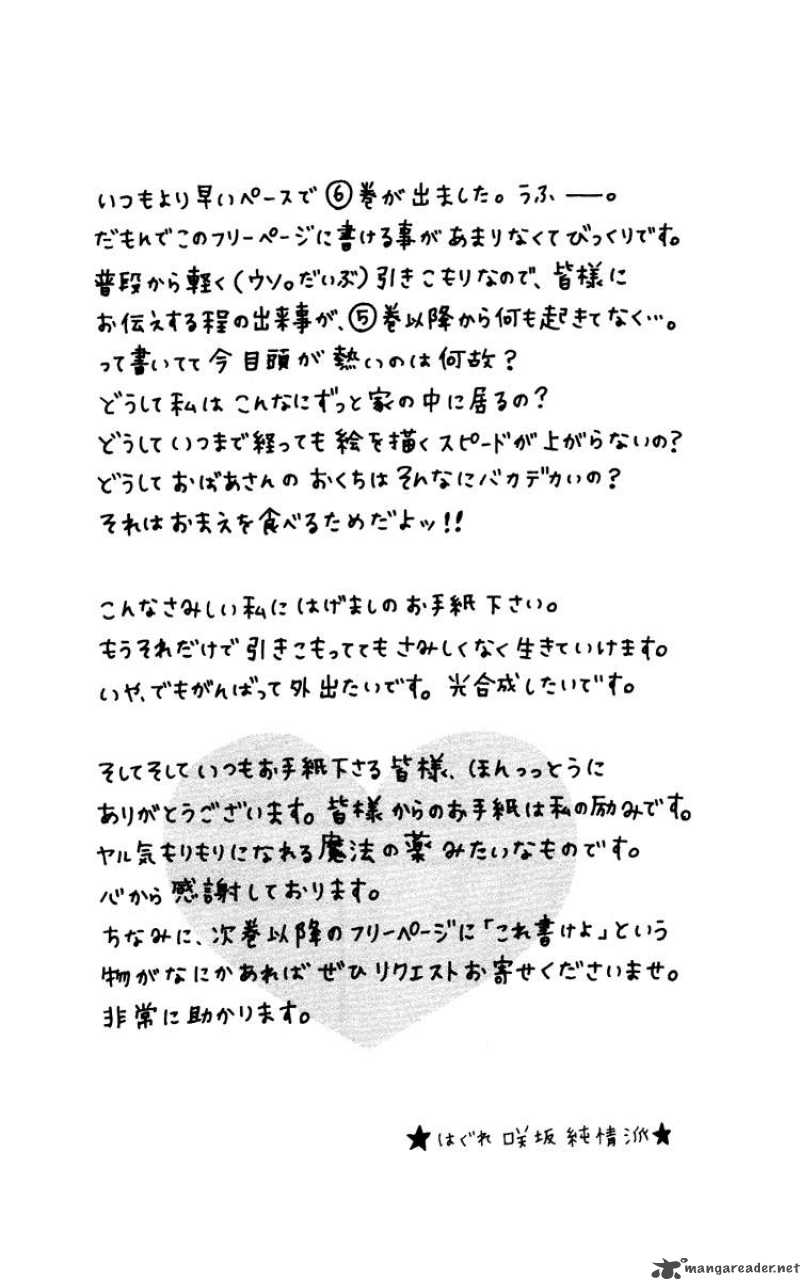 いつもより早いペースで⑥巻が出ました。うふ──。
だもんでこのフリーページに書ける事があまりなくてびっくりです。
普段から軽く(ウソ。だいぶ)引きこもりなので、皆様に
お伝えする程の出来事が、⑤巻以降から何も起きてなく…。
って書いてて今目頭が熱いのは何故?
どうして私はこんなにずっと家の中に居るの?
どうしていつまで経っても絵を描くスピードが上がらないの?
どうしておばあさんのおくちはそんなにバカデカいの?
それはおまえを食べるためだよッ!!
こんなさみしい私にはげましのお手紙下さい。
もうそれだけで引きこもっててもさみしくなく生きていけます。
いや、でもがんばって外出たいです。光合成したいです。
そしてそしていつもお手紙下さる皆様、ほんっっとうに
ありがとうございます。皆様からのお手紙は私の励みです。
ヤル気もりもりになれる魔法の薬みたいなものです。
心から感謝しております。
ちなみに、次巻以降のフリーページに「これ書けよ」という
物がなにかあればぜひリクエストお寄せくださいませ。
非常に助かります。
★はぐれ咲坂純情派★
mangareader.net